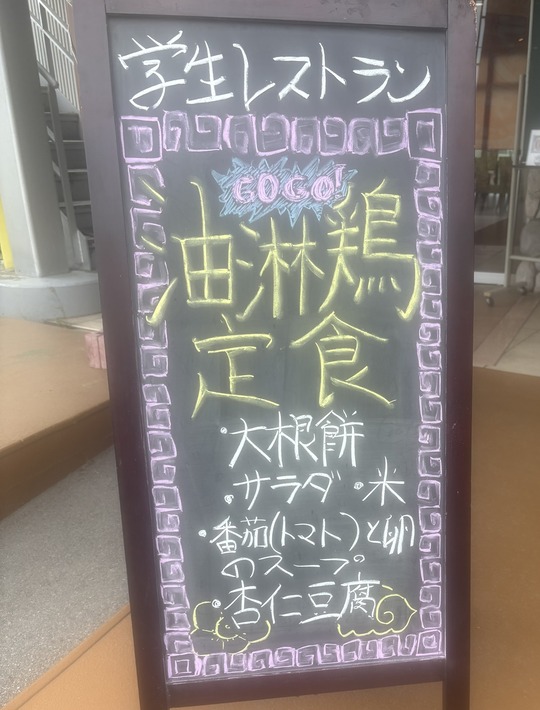 学生レストラン
GOGO!
油淋鶏
定食
・大根餅
・サラダ・米
・番茄(トマト)と卵
のスープ。
・杏仁豆腐